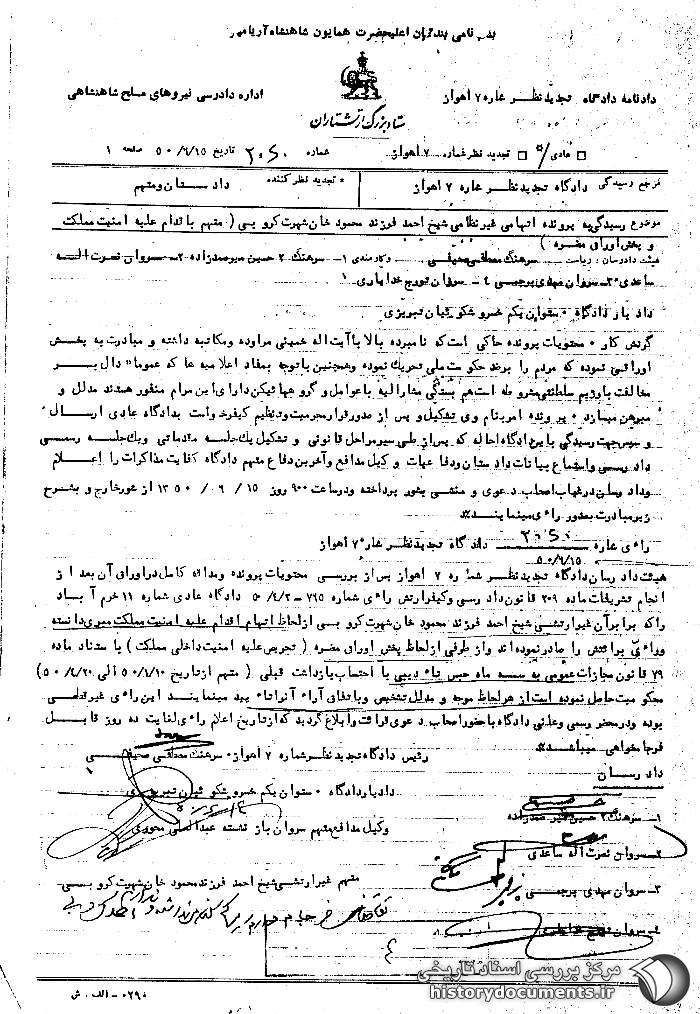 بنام نامی بندگان اعلیحضرت همایون شاهنشاه آریامهر
دادنامه دادگاه تجدید نظر شماره ۷ اهواز
اداره دادرسی نیروهای مسلح شاهنشاهی
ستاد بزرگ ارتشتاران
□ عادی □ تجدید نظر شماره ۷ اهواز شماره ۲۰۶۰ تاریخ ۵۰/۶/۱۵ صفحه ۱
مرجع رسیدگی دادگاه تجدید نظر شماره ۷ اهواز
تجدید نظر کننده دادستان و متهم
موضوع رسیدگی به پرونده اتهامی غیر نظامی شیخ احمد فرزند محمود خان شهرت کروبی ( متهم باقدام علیه امنیت مملکت
و پخش اوراق مضره )
هیئت دادرسان : ریاست سرهنگ مصطفی و کارمندی ۱- سرهنگ ۲ حسین میرصدرزاده ۲- سروان نصرت اله
ساعدی ۳- سروان مهدی پرچمی ۴- سروان تورج خدایاری
دادیار دادگاه ستوان یکم خسرو شکوئیان تبریزی
گردش کار : محتویات پرونده حاکی است که نامبرده بالا با آیت اله خمینی مراوده و مکاتبه داشته و مبادرت به پخش
اوراقی نموده که مردم را بر ضد حکومت ملی تحریک نموده و همچنین با توجه بمفاد اعلامیه ها که عموما" دال بر
مخالفت با رژیم سلطنتی مشروطه است هم بستگی مشارالیه با عوامل و گروههائیکه دارای این مرام منفور هستند مدلل و
مبرهن میسازد پرونده امر بنام وی تشکیل و پس از صدور قرار مجرمیت و تنظیم کیفرخواست بدادگاه عادی ارسال
و سپس جهت رسیدگی باین دادگاه احاله که پس از طی سیر مراحل قانونی و تشکیل یک جلسه مقدماتی و یک جلسه رسمی
دادرسی و استماع بیانات دادستان و دفاعیات وکیل مدافع و آخرین دفاع متهم دادگاه کفایت مذاکرات را اعلام
و دادرسان در غیاب اصحاب دعوی و منشی بشور پرداخته و در ساعت ۹۰۰ روز ۱۵ / ۰۶ / ۱۳۵۰ از شور خارج و بشرح
زیر مبادرت بصدور رأی مینمایند
رأی شماره ۲۰۶۰ دادگاه تجدید نظر شماره ۷ اهواز
۵۰/۶/۱۵
هیئت دادرسان دادگاه تجدید نظر شماره ۷ اهواز پس از بررسی محتویات پرونده و مداقه کامل در اوراق آن بعد از
انجام تشریفات ماده ۲۰۹ قانون دادرسی و کیفر ارتش رأی شماره ۷۶۵-۵۰/۴/۲ دادگاه عادی شماره ۱۱ خرم آباد
را که برابر آن غیر ارتشی شیخ احمد فرزند محمود خان شهرت کروبی از لحاظ اتهام اقدام علیه امنیت مملکت مبری دانسته
و رأی برائتش را صادر نموده اند و از طرفی از لحاظ پخش اوراق مضره ( تحریص علیه امنیت داخلی مملکت ) باستناد ماده
۷۹ قانون مجازات عمومی به سه ماه حبس تأدیبی با احتساب بازداشت قبلی ( متهم از تاریخ ۵۰/۱/۱۰ الی ۵۰/۴/۲۰ )
محکومیت حاصل نموده است از هر لحاظ موجه و مدلل تشخیص و باتفاق آراء آنرا تأیید مینمایند این رأی غیر قطعی
بوده و در محضر رسمی و علنی دادگاه با حضور اصحاب دعوی قرائت و ابلاغ گردید که از تاریخ اعلام رأی لغایت ده روز قابل
فرجامخواهی میباشد
رئیس دادگاه تجدید نظر شماره ۷ اهواز سرهنگ مصطفی
دادرسان
دادیار دادگاه ستوان یکم خسرو شکوئیان تبریزی
۱- سرهنگ ۲ حسین میر صدرزاده
وکیل مدافع متهم سروان بازنشسته عبدالعلی محوری
۲- سروان نصرت اله ساعدی
۳- سروان مهدی پرچمی
متهم غیر ارتشی شیخ احمد فرزند محمود خان شهرت کروبی
۴- سروان
تقاضای فرجام دارم
۰۲۹۰ - الف . ش
مرکز بررسی اسناد تاریخی
historydocuments.ir